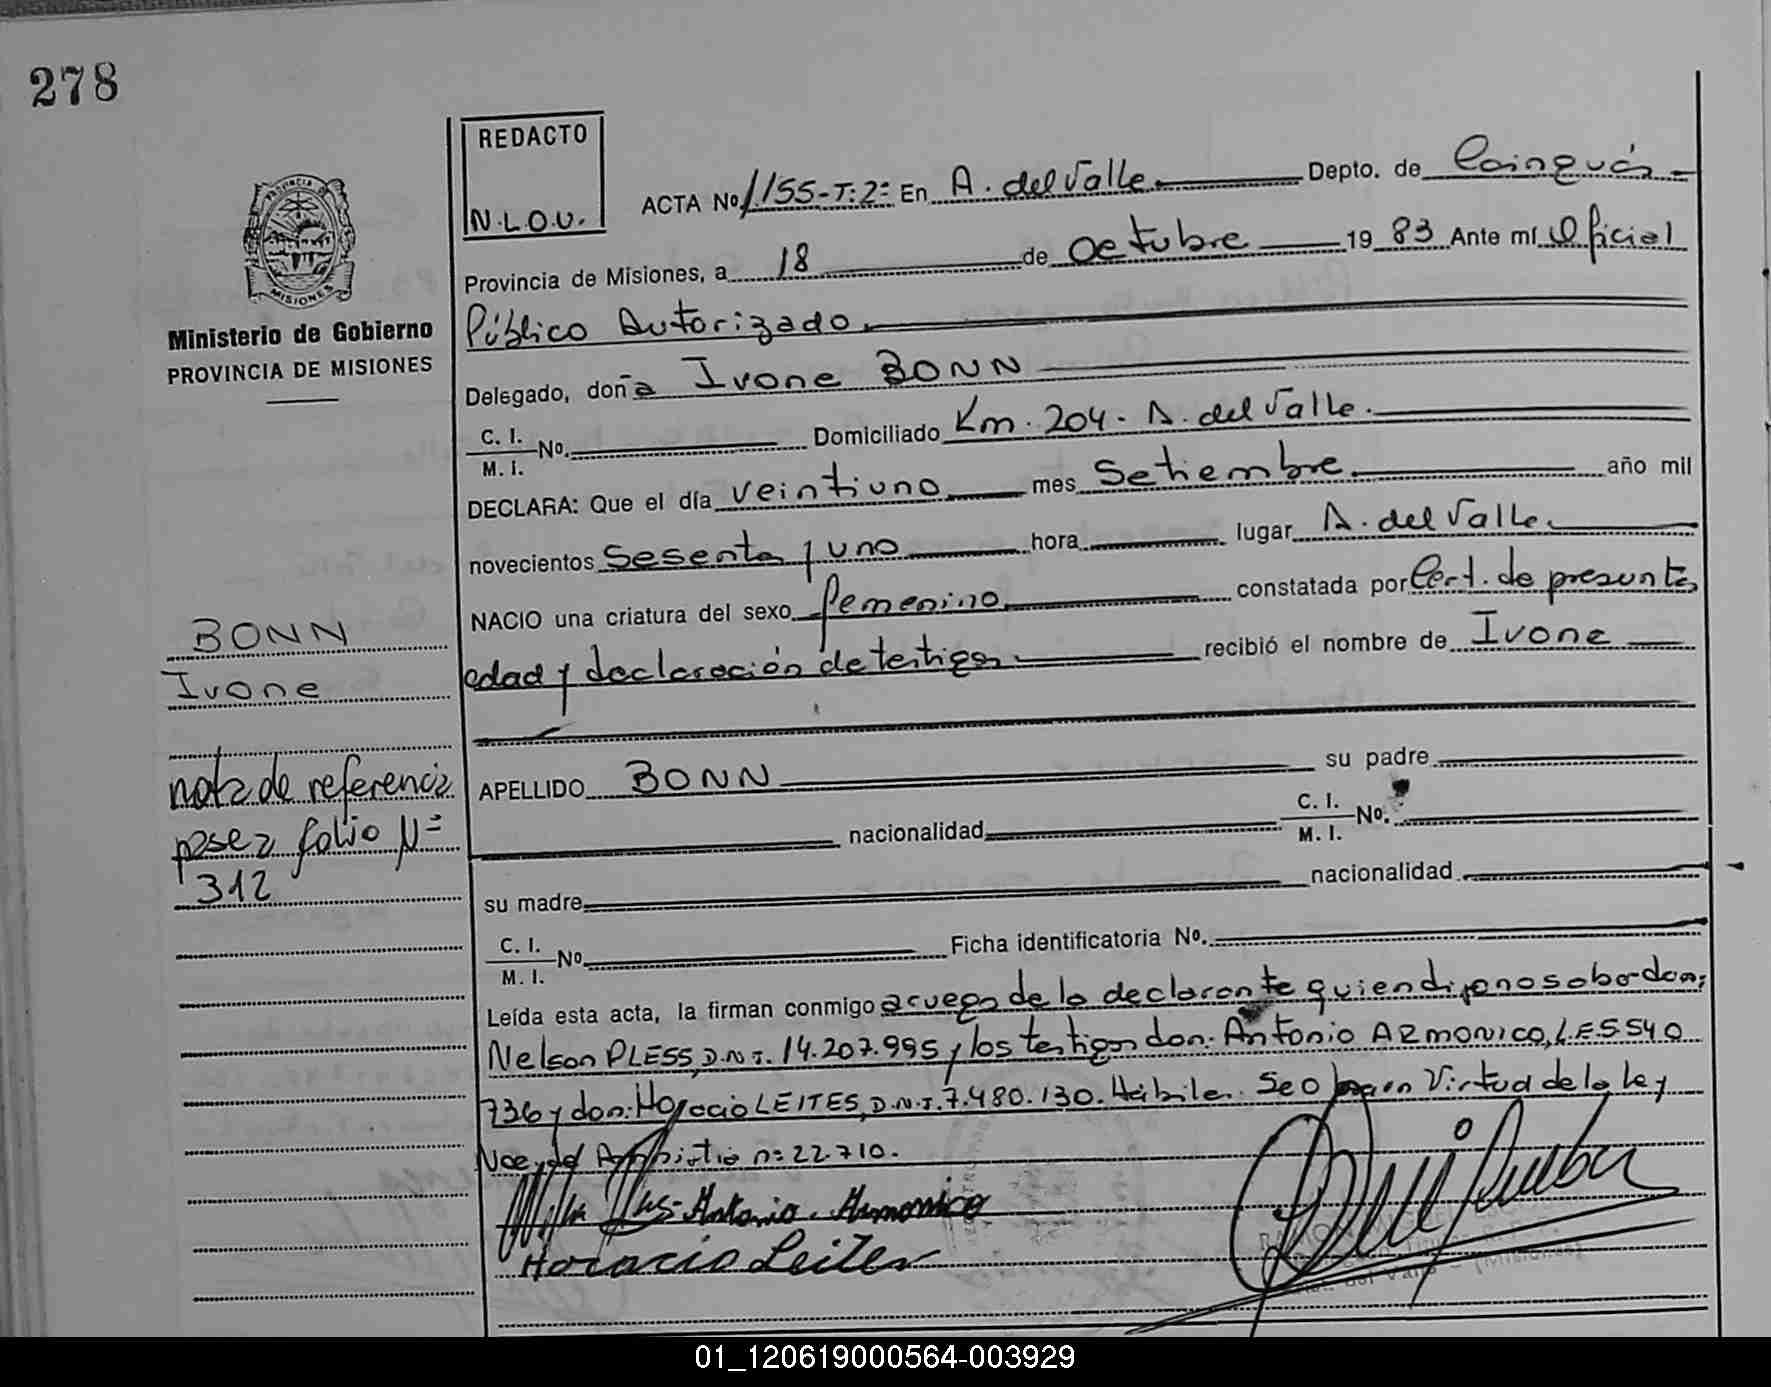 278
REDACTO
N.L.O.U.
ACTA No 1155-T:2º En A. del Valle Depto. de Cainguás
Provincia de Misiones, a 18 de Octubre 19 83 Ante mí Oficial
Público Autorizado
Delegado, doña Ivone BONN
C. I.
M. I. No. Domiciliado Km. 204. A. del Valle.
DECLARA: Que el día veintiuno mes Setiembre año mil
novecientos Sesenta y uno hora lugar A. del Valle
NACIO una criatura del sexo femenino constatada por Cert. de presunta
edad y declaración de testigos recibió el nombre de Ivone
APELLIDO BONN su padre
nacionalidad C. I.
M. I. No.
su madre nacionalidad
C. I.
M. I. No Ficha identificatoria No.
Leída esta acta, la firman conmigo a ruego de la declarante quien dijo no sabe don:
Nelson PLESS, D.N.I. 14.207.995 y los testigos don: Antonio ARMONICO, L.E. 5540
736 y don: Horacio LEITES, D.N.I. 7.480.130. Hábiles. Se en Virtud de la Ley
Nac. de Amnistia nº 22710.
Antonio. Armonico
Horacio Leites
PROVINCIA DE
MISIONES
Ministerio de Gobierno
PROVINCIA DE MISIONES
BONN
Ivone
nota de referencia
pase a folio Nº
312
01_120619000564-003929